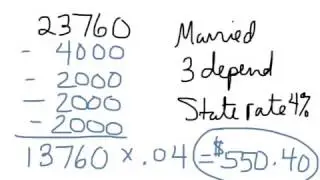 23760
- 4000
- 2000
- 2000
- 2000
13760 × .04 = $550.40
Married
3 depend
State rate 4%